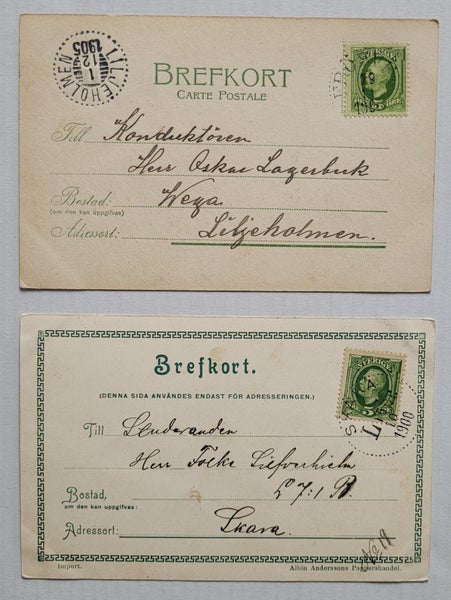 LILJEHOLMEN
1
12
1905
BREFKORT
CARTE POSTALE
SVERIGE
ÖRE
Till Konduktören
Herr Oskar Lagerbuck
Bostad: Wega
(om den kan uppgifvas)
Adressort: Liljeholmen.
Brefkort.
(DENNA SIDA ANVÄNDES ENDAST FÖR ADRESSERINGEN.)
SVERIGE
1900
Till Studeranden
Herr Folke Silfverhielm
Bostad, L 7:1 B
om den kan uppgifvas:
Adressort: Skara.
Import.
Albin Anderssons Pappershandel.